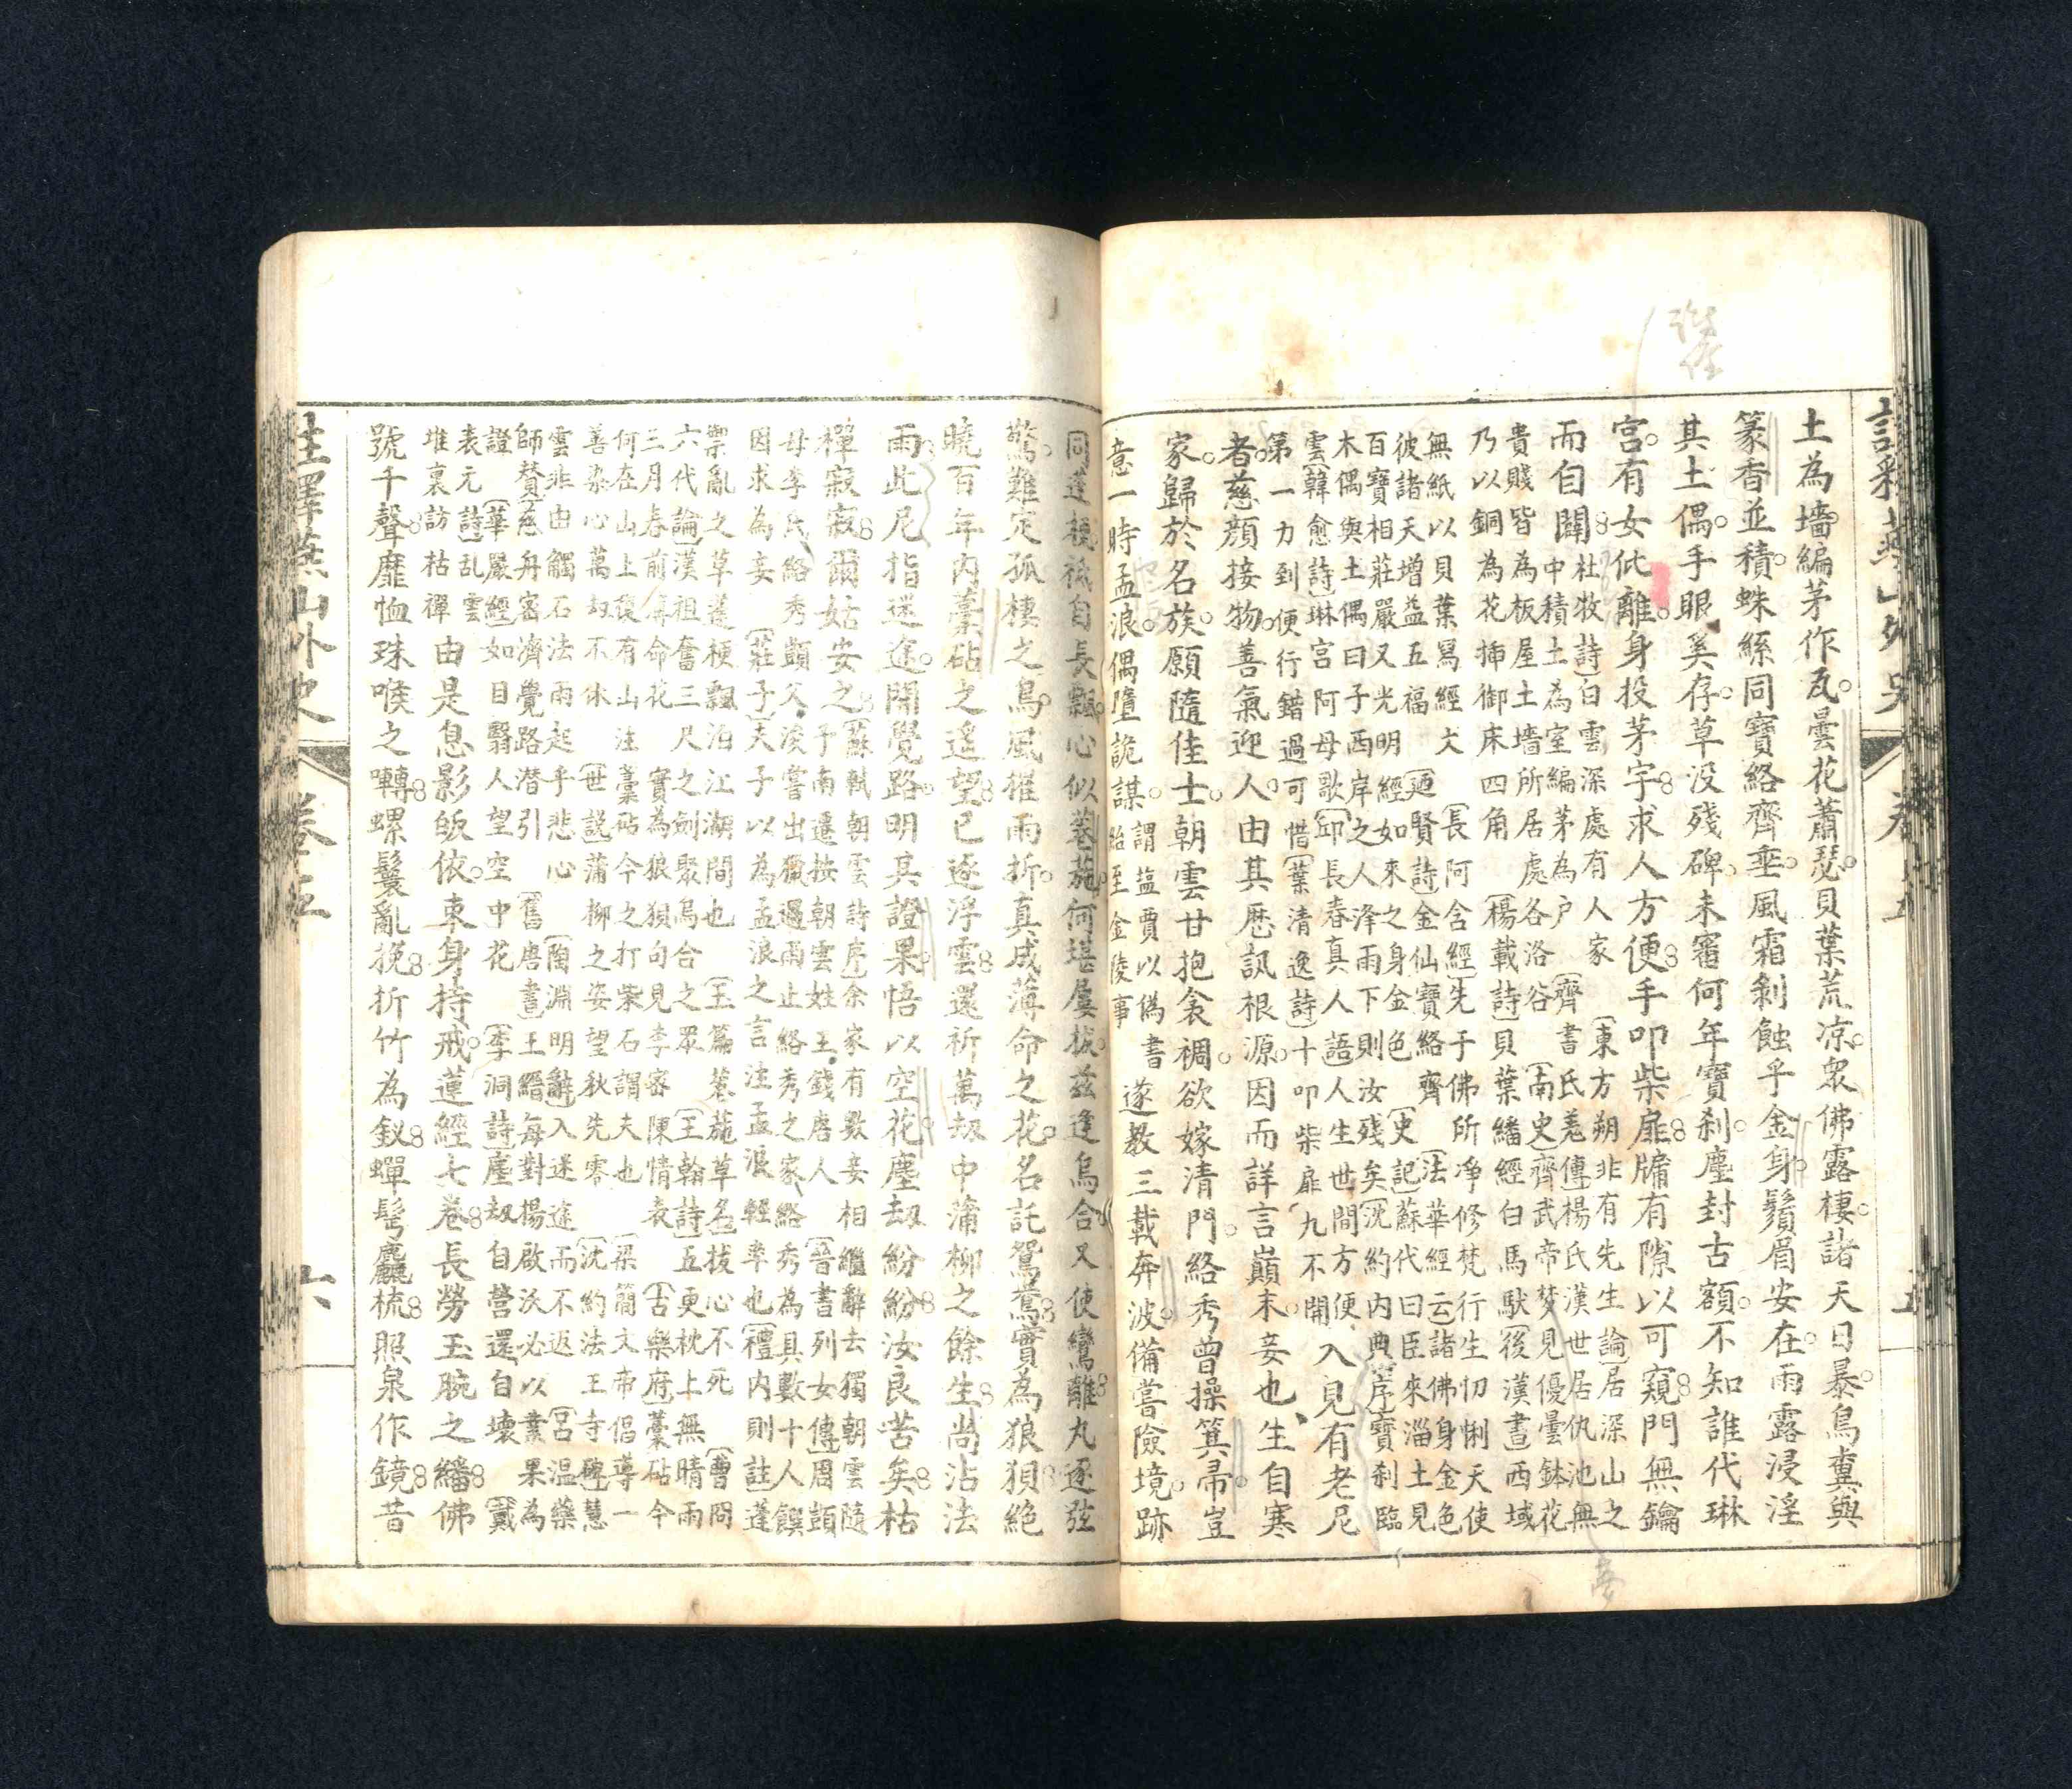 註釋燕山外史 卷五 五
土為墻編茅作瓦曇花蕭瑟貝葉荒凉眾佛露棲諸天日暴鳥糞與
篆香並積蛛絲同寶絡齊垂風霜剝蝕乎金身鬚眉安在雨露浸淫
其土偶手眼奚存草没殘碑未審何年寶刹塵封古額不知誰代琳
宮有女仳離身投茅宇求人方便手叩柴扉牖有隙以可窺門無鑰
而自闢
杜牧詩白雲深處有人家 東方朔非有先生論居深山之
中積土為室編茅為户 齊書氐羌傳楊氏漢世居仇池無
貴賤皆為板屋土墻所居處各洛谷 南史齊武帝夢見優曇鉢花
乃以銅為花挿御床四角 楊載詩貝葉繙經白馬馱 後漢書西域
無紙以貝葉寫經文 長阿含經先于佛所凈修梵行生忉悧天使
彼諸天增益五福 廼賢詩金仙寶絡齊 法華經云諸佛身金色
百寶相莊嚴又光明經如來之身金色 史記蘇代曰臣來淄土見
木偶與土偶曰子西岸之人洚雨下則汝殘矣 沈約内典序寶刹臨
雲 韓愈詩琳宮阿母歌 邱長春真人語人生世間方便
第一力到便行錯過可惜 葉清逸詩十叩柴扉九不開
入見有老尼
者慈顔接物善氣迎人由其歷訊根源因而詳言巔末妾也生自寒
家歸於名族願隨佳士朝雲甘抱衾裯欲嫁清門絡秀曾操箕帚豈
意一時孟浪偶墮詭謀
謂盐賈以偽書
紿至金陵事
遂教三載奔波備嘗險境跡
同蓬梗秪自長飄心似菤葹何堪屢拔兹逢烏合又使鸞離丸逐弦
驚難定孤棲之鳥風摧雨折真成薄命之花名託鴛鴦實為狼狽絶
曉百年内藁砧之遙望已逐浮雲還祈萬刼中蒲柳之餘生尚沾法
雨此尼指迷途開覺路明其證果悟以空花塵刼紛紛汝良苦矣枯
禪寂寂爾姑安之
蘇軾朝雲詩序余家有數妾相繼辭去獨朝雲隨
予南遷按朝雲姓王錢唐人 晉書列女傳周顗
母李氏絡秀顗父浚嘗出獵遇雨止絡秀之家絡秀為具數十人饌
因求為妾 莊子夫子以為孟浪之言注孟浪輕率也 禮内則註蓬
禦亂之草蓬梗飄泊江湖間也 玉篇菤葹草名拔心不死 曹冏
六代論漢祖奮三尺之劍聚烏合之眾 王翰詩五更枕上無晴雨
三月春前薄命花 實為狼狽句見李審陳情表 古樂府藁砧今
何在山上復有山注藁砧今之打柴石謂夫也 梁簡文帝倡導一
善染心萬刼不休 世説蒲柳之姿望秋先零 沈約法王寺碑慧
雲非由觸石法雨起乎悲心 陶淵明辭入迷途而不返 宮温藥
師賛慈舟密濟覺路潜引 舊唐書王縉每對楊啟沃必以業果為
證 華嚴經如目翳人望空中花 李洞詩塵刼自營還自壞 戴
表元詩乱雲
堆裏訪枯禪
由是息影皈依束身持戒蓮經七卷長勞玉腕之繙佛
號千聲靡恤珠喉之囀螺鬟亂挽折竹為釵蟬髩麤梳照泉作鏡昔
註釋燕山外史 卷五 六